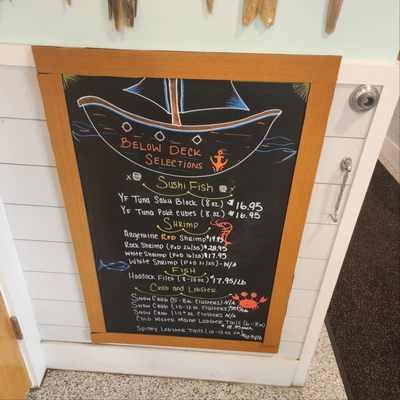 Below Deck
Selections
Sushi Fish
YF Tuna Saku Block (8 oz.) $16.95
YF Tuna Poké Cubes (8 oz.) $16.95
Shrimp
Argentine Red Shrimp $19.95
Rock Shrimp (P+D 26/35) $28.95
White Shrimp (P+D 16/20) $17.95
White Shrimp (P+D 21/25) - N/A
Fish
Haddock Filet (8-10 oz.) $17.95/lb
Crab and Lobster
Snow Crab (5-8 oz clusters) N/A
Snow Crab (10-12 oz clusters)
Snow Crab (14+ oz clusters N/A
Cold Water Maine Lobster Tails (6-8 oz)
$18.95 each
Spiney Lobster Tails (10-12 oz ea)